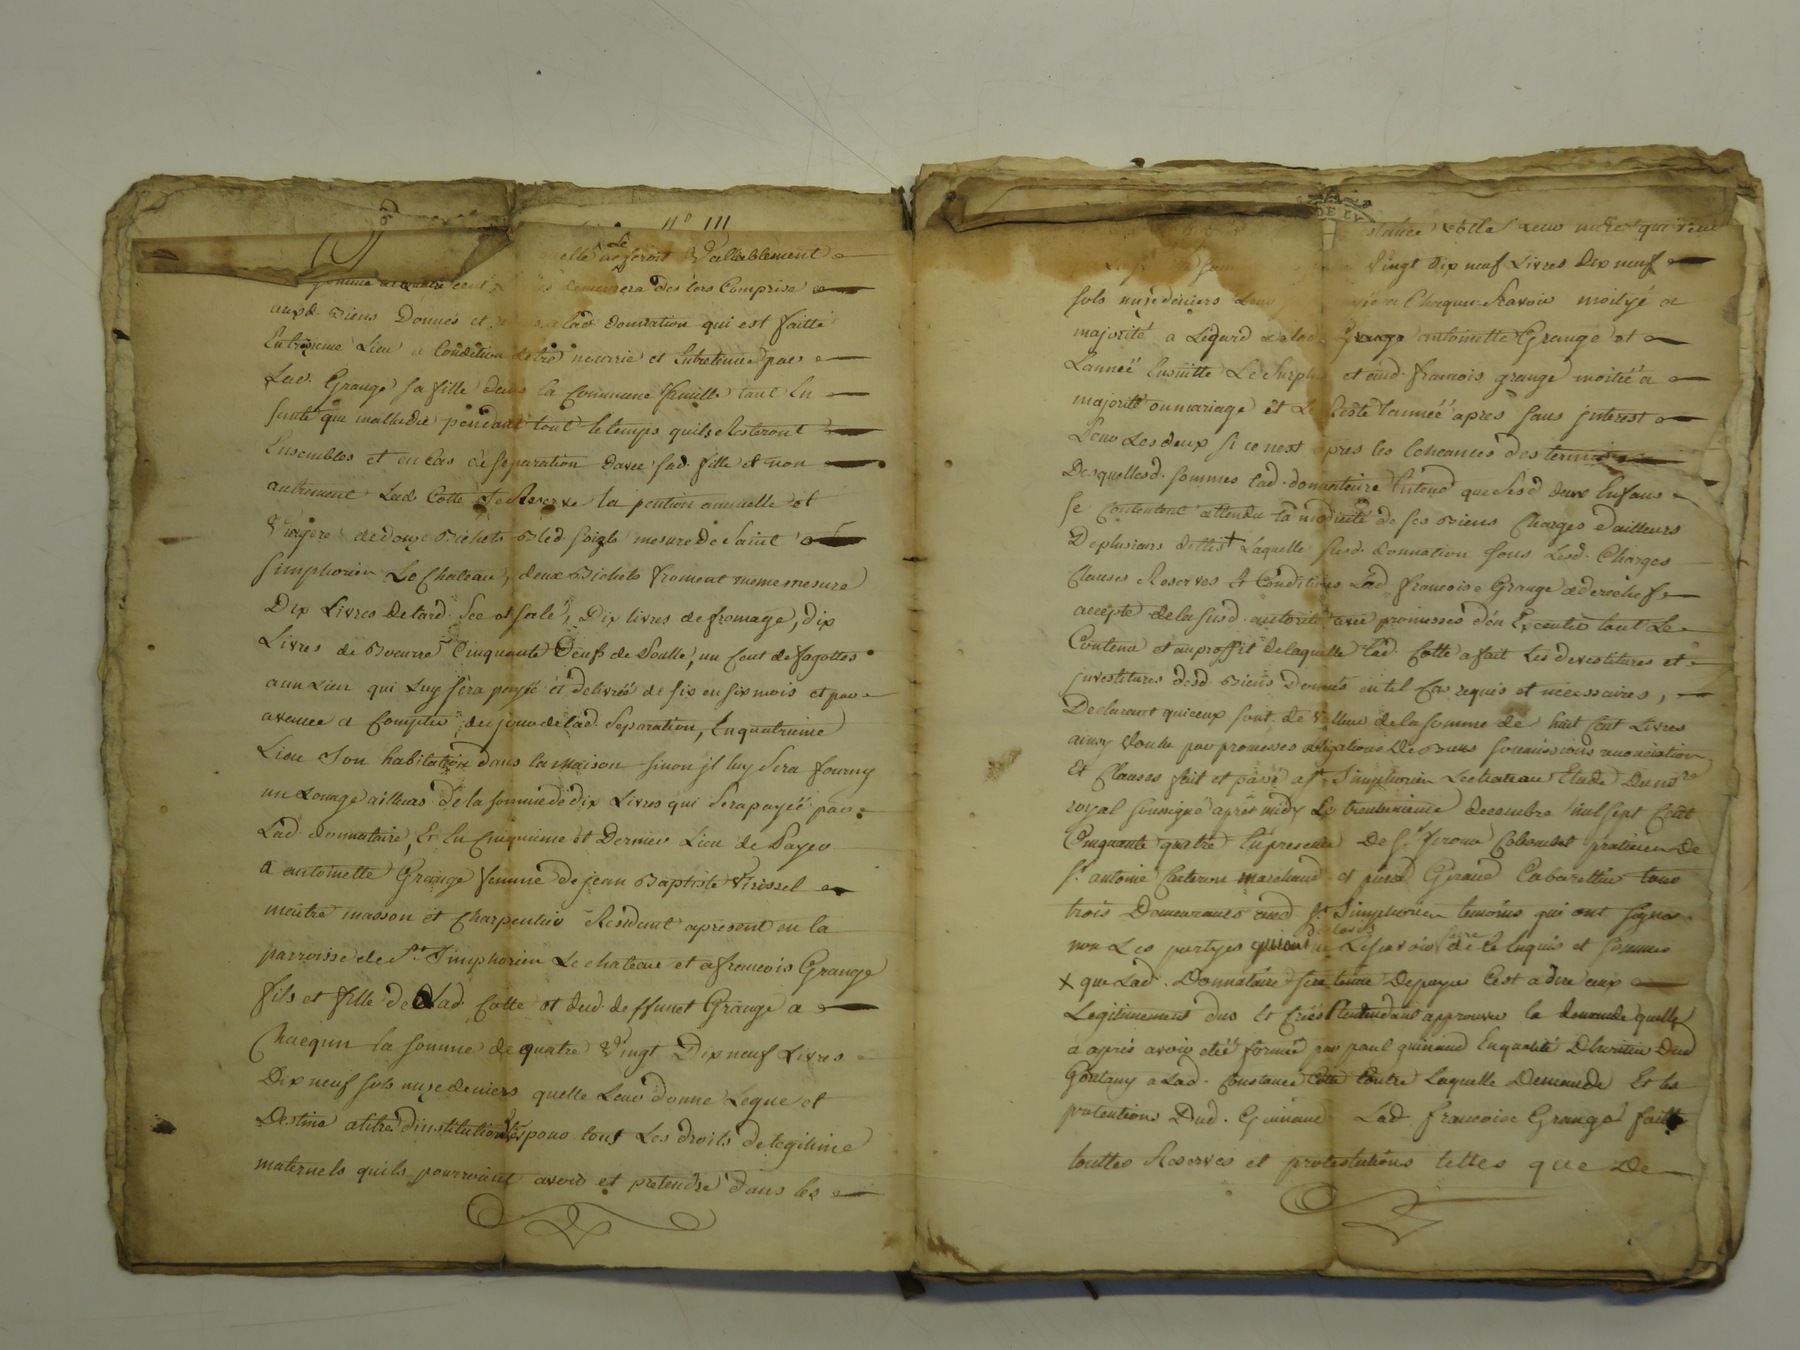 n° 111
le
elle ne feroit Vallablement
somme de quatre cent demeurera des lors Comprise
auxd. Biens Donnés et a lad donnation qui est faitte
En troisieme Lieu a Condition detre nourrie et Entretenue par
Lad. Grange sa fille dans la Commune famille tant En
santé que malladie pendant tout le temps quils Resteront
Ensembles et en Cas de separation davec sad. fille et non
autrement Lad. Cotte se Reserve la pention annuelle et
Viagere de douze Bichets Bled soigle mesure de Saint
simphorien Le Chateau, deux Bichets froment meme mesure
Dix Livres de lard sec et salé, Dix livres de fromage, dix
Livres de Boeurre Cinquante Oeufs de Poulle, un Cent de fagottes
aun Lien qui Luy sera payée et delivrée de six en six mois et par
avance a Compter du jour de lad. Separation, En quatrieme
Lieu Son habitation dans la maison sinon jl luy sera fourny
un Louage ailleurs de la somme de dix Livres qui sera payée par
Lad donnataire, Et En Cinquieme et Dernier Lieu de Payer
a antoinette Grange femme de jean Baptiste
maitre masson et Charpentier Residant apresent en la
parroisse de St. Simphorien Le chateau et a francois Grange
fils et fille de Lad. Cotte et dud deffunct Grange a
Chacqun la somme de quatre Vingt Dix neuf Livres
Dix neuf sols onze deniers quelle Leur donne Legue et
Destine a titre d'institution pour tous Les droits de legitime
maternels quils pourroient avoir et pretendre dans les
leur mere qui
Vingt Dix neuf Livres Dix neuf
sols onze deniers a Chacqun Scavoir moityé a
majorité a Legard de lad. Grange antoinette Grange et
Lannéé Ensuitte Le Surplus et aud. francois grange moitiéé a
majorité ou mariage et Le Reste Lannéé apres sans jnterest
Pour Les deux si ce nest apres les Echeances des termes
Desquelles d. sommes lad. donnatrice Entend que Sesd deux Enfans
se Contentent attendu la modicité de ses Biens Charges dailleurs
De plusieurs dettes + Laquelle susd. donnation sous Lesd. Charges
Clauses Reserves Et Conditions Lad. francoise Grange a derechef
accepté de la susd. autorité avec promesses d'en Executer tout Le
Contenu et au proffit de laquelle Lad. Cotte a fait Les devestitures et
jnvestitures desd Biens Donnés en tel Cas requis et necessaires,
Declarant qui ceux sont de Valleur de la somme de huit Cent Livres
ainsy Voulu par promesses obligations de Biens soumissions renonciation
Et Clauses fait et passé a St Simphorien Le chateau Etude Du nre
royal soussigné aprés midy Le trentunieme decembre mil sept Cent
Cinquante quatre En presence De Sr. Colombet praticien De
Sr. antoine marchand et Giraud Cabarettier tous
trois Demeurants aud St. Simphorien temoins qui ont signés
declarés faire
non Les partyes qui ont ne Lescavoir de ce Enquis et sommés
x que Lad. Donnataire sera tenue Depayer Cest a dire ceux
Legitimement dus Et Créés sentendant approuver la demande quelle
a aprés avoir etéé formée par paul guinand En qualité Dheritier Dud
Goutany a Lad. Constance Cotte Contre Laquelle Demande Et les
pretentions Dud. Guinand Lad. francoise Grange faitt
touttes Reserves et protestations telles que De